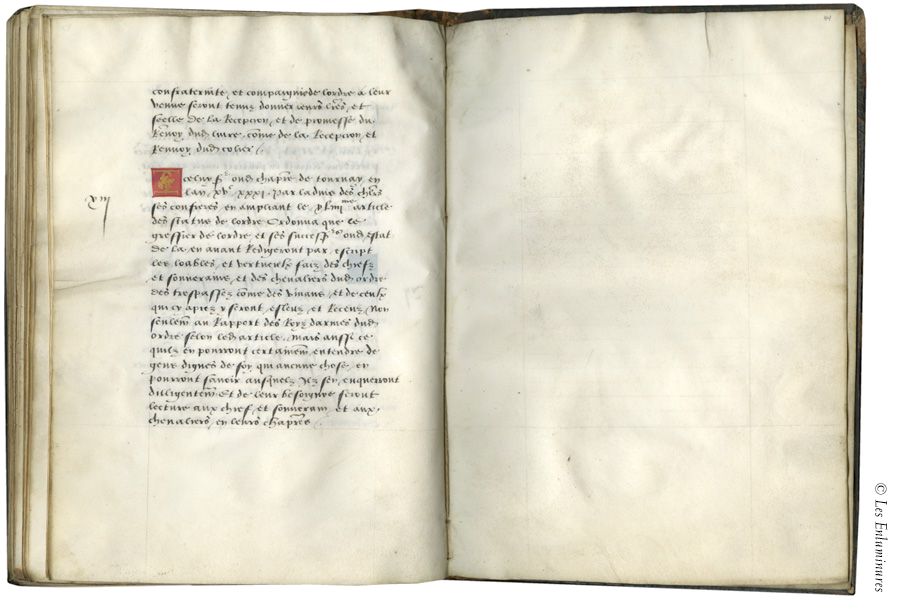 44
confraternite, et compaignie de lordre a leur
venue seront tenuz donner leurs lres, et
seelle de la Recepcion, et de promesse du
Renvoy dud livre, come de la Recepcion, et
Renvoy dud colier.
Iceluy sr oud chapre de tournay, en
lan, xvc xxxi. par ladvis de ses chlrs
ses confreres, en ampliant le article
des statuz de lordre Ordonna que le
greffier de lordre, et ses successrs oud estat
de la, en avant Redigeront par, escript
les loables, et vertueulx faiz, des chiefz
et souverains, et des chevaliers dud, ordre
des trespassez, come des vivans, et de ceulx
qui cy apres y seront, esleuz, et Receuz, Non
seulem au Rapport des Roys darmes dud
ordre selon led article, mais aussi ce
quilz en pourront certainem, entendre de
gens dignes de foy, qui aucune chose, en
pourront savoir ausquelz Ilz sen, enquerront
diligentem Et de leur besoigne seront
lecture aux chief, et souverain, et aux
chevaliers, en leurs chapres
© Les Enluminures